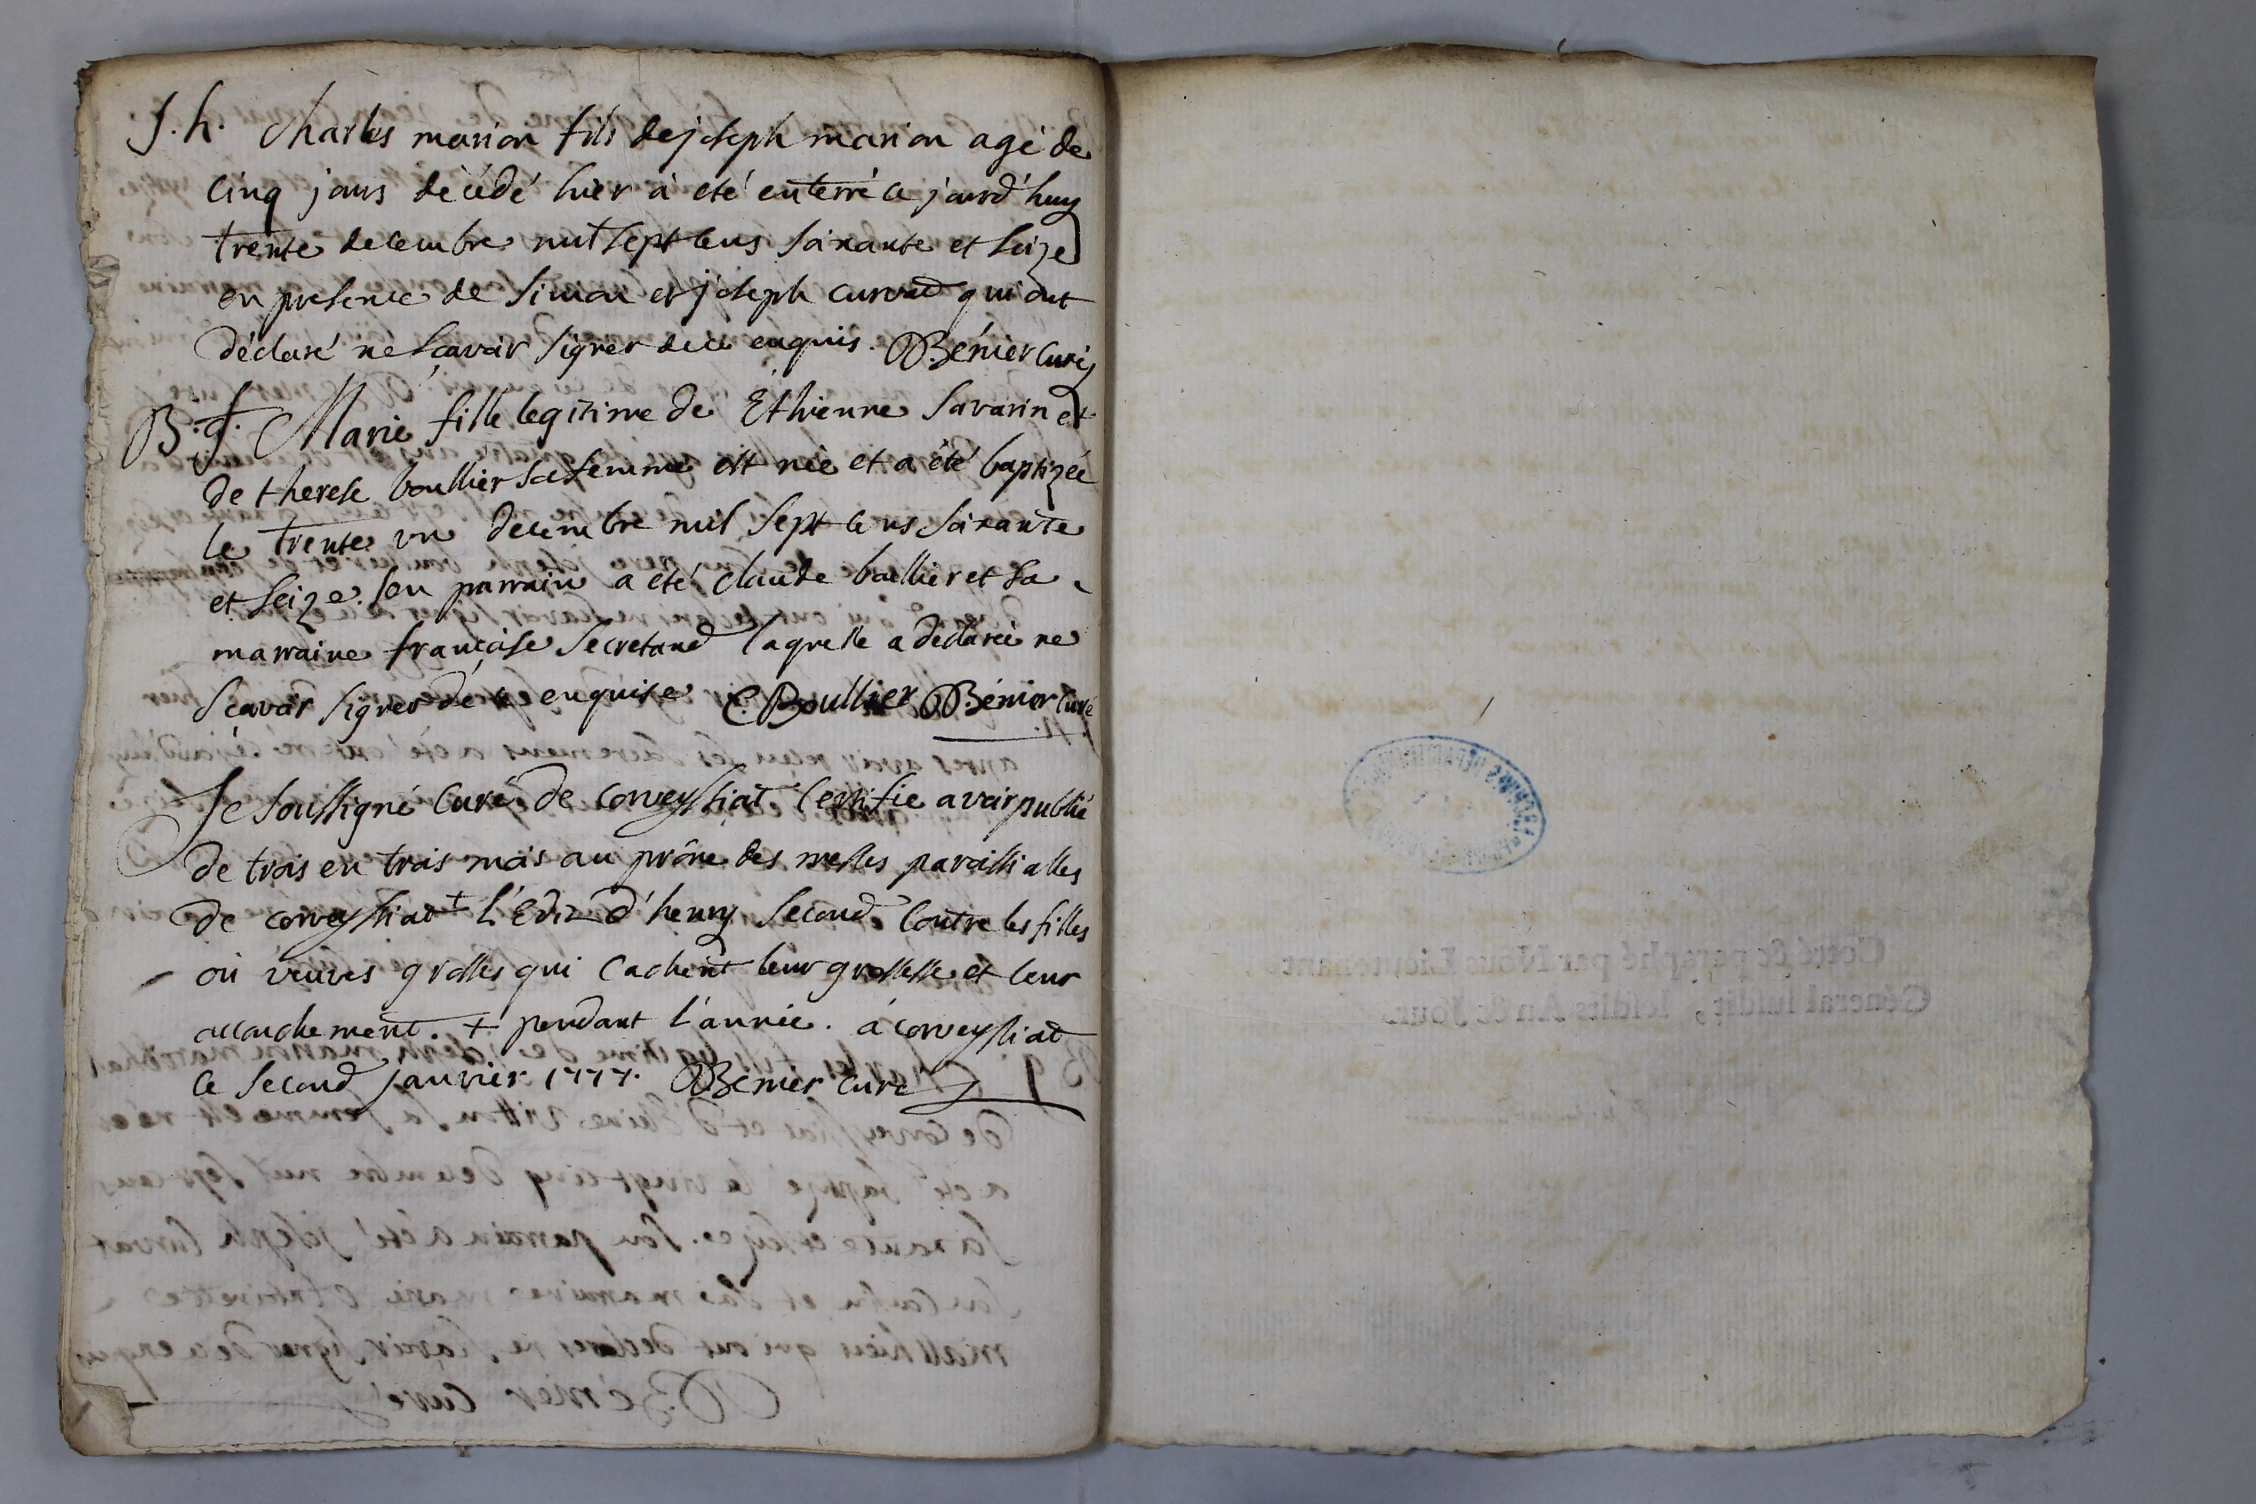 S. h. charles marion fils de joseph marion agé de
cinq jours décédé hier à eté enterré ce jourd'huy
trente decembre mil sept cens soixante et seize
en presence de simon et joseph curvad qui ont
déclaré ne sçavoir signer de ce enquis. Bénier curé
B. f. Marie fille legitime de Ethienne Savarin et
de therese boullier sa femme est née et a été baptizée
le trente un decembre mil sept cens soixante
et seize. son parrain a eté claude boullier et sa
marraine françoise secretand laquelle a declarée ne
sçavoir signer de ce enquise C. Boullier Bénier curé
Je soussigné curé de corveyssiat certifie avoir publié
de trois en trois mois au prône des messes paroissialles
de corveyssiat + l'Edit d'henry second contre les filles
où veuves grosses qui cachent leur grossesse et leur
accouchement. + pendant l'année. á corveyssiat
ce second janvier 1777. Benier curé
Cotté & paraphé par Nous Lieutenant
Général susdit, lesdits An & Jour.